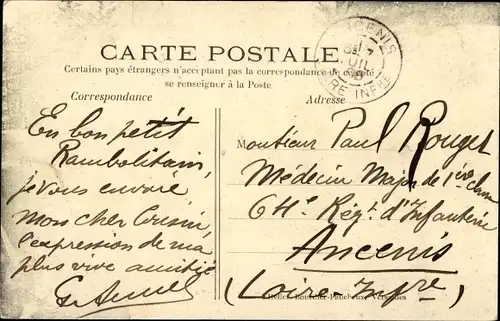 CARTE POSTALE
Certains pays étrangers n'acceptant pas la correspondance de ce côté
se renseigner à la Poste
Correspondance
Adresse
ANCENIS
En bon petit
Rambolitain,
je vous envoie,
mon cher Cousin,
l'expression de ma
plus vive amitié
Monsieur Paul Rouget
Médecin Major de 1ère classe
64e Régt. d'Infanterie
Ancenis
(Loire-Infre)